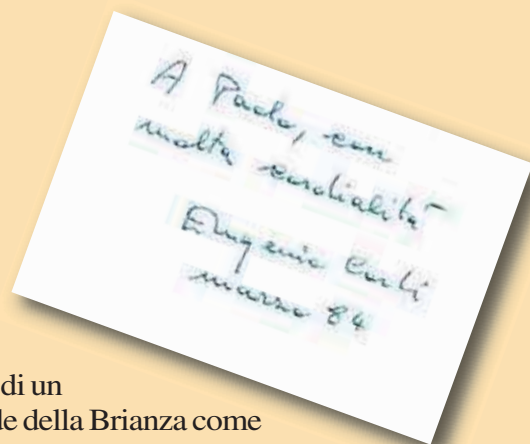 A Paolo, con
molta cordialità
Eugenio Corti
marzo 84
di un
de della Brianza come